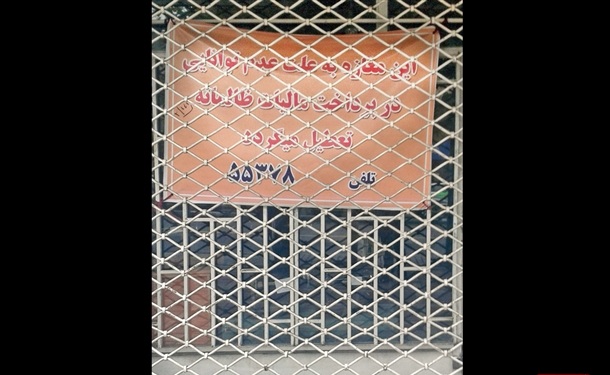 این مغازه به علت عدم توانایی
در پرداخت مالیات ظالمانه
تعطیل میگردد
تلفن ۵۵۳۷۸